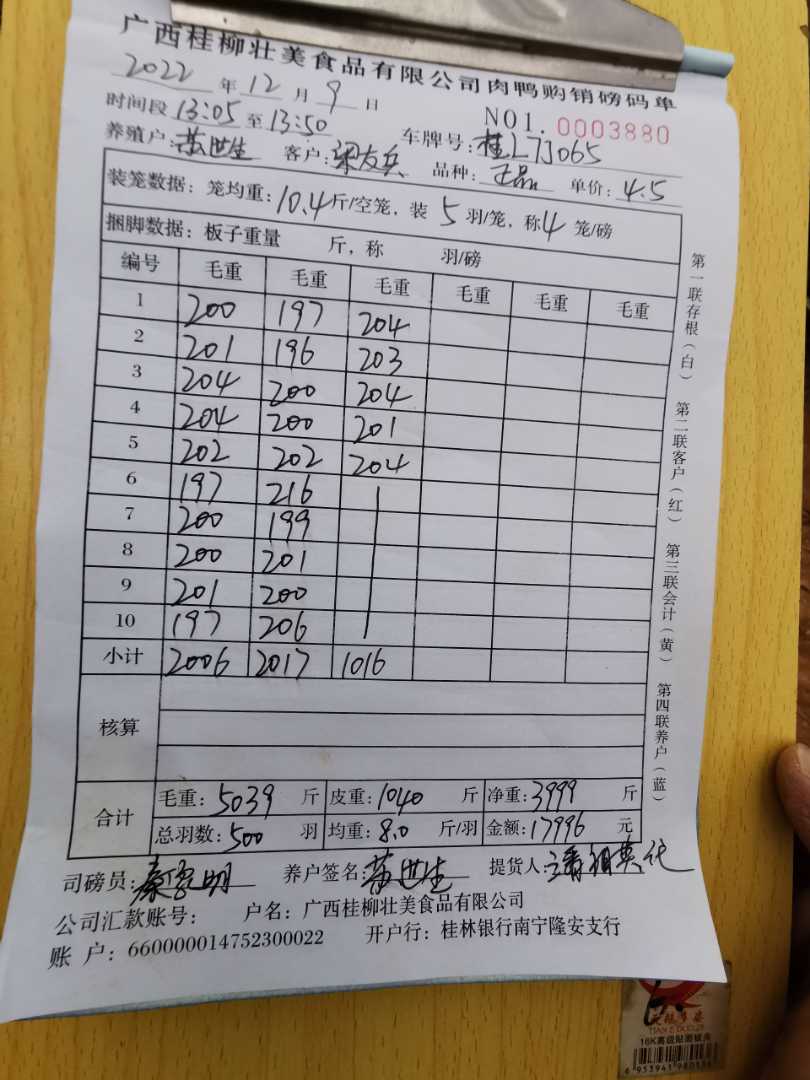 广西桂柳壮美食品有限公司肉鸭购销磅码单
2022 年 12 月 9 日
NO1. 0003880
时间段 13:05 至 13:50 车牌号: 桂L7J065
养殖户: 苏世生 客户: 梁友兵 品种: 正品 单价: 4.5
装笼数据: 笼均重: 10.4 斤/空笼, 装 5 羽/笼, 称 4 笼/磅
捆脚数据: 板子重量 斤, 称 羽/磅
编号 毛重 毛重 毛重 毛重 毛重 毛重
1 200 197 204
2 201 196 203
3 204 200 204
4 204 200 201
5 202 202 204
6 197 216
7 200 199
8 200 201
9 201 200
10 197 206
小计 2006 2017 1016
核算
合计 毛重: 5039 斤 皮重: 1040 斤 净重: 3999 斤
总羽数: 500 羽 均重: 8.0 斤/羽 金额: 17996 元
司磅员: 秦家明 养户签名: 苏世生 提货人:
公司汇款账号: 户名: 广西桂柳壮美食品有限公司
账 户: 660000014752300022 开户行: 桂林银行南宁隆安支行
第一联存根(白) 第二联客户(红) 第三联会计(黄) 第四联养户(蓝)
TIAN E DUCUZI
16K高级贴面